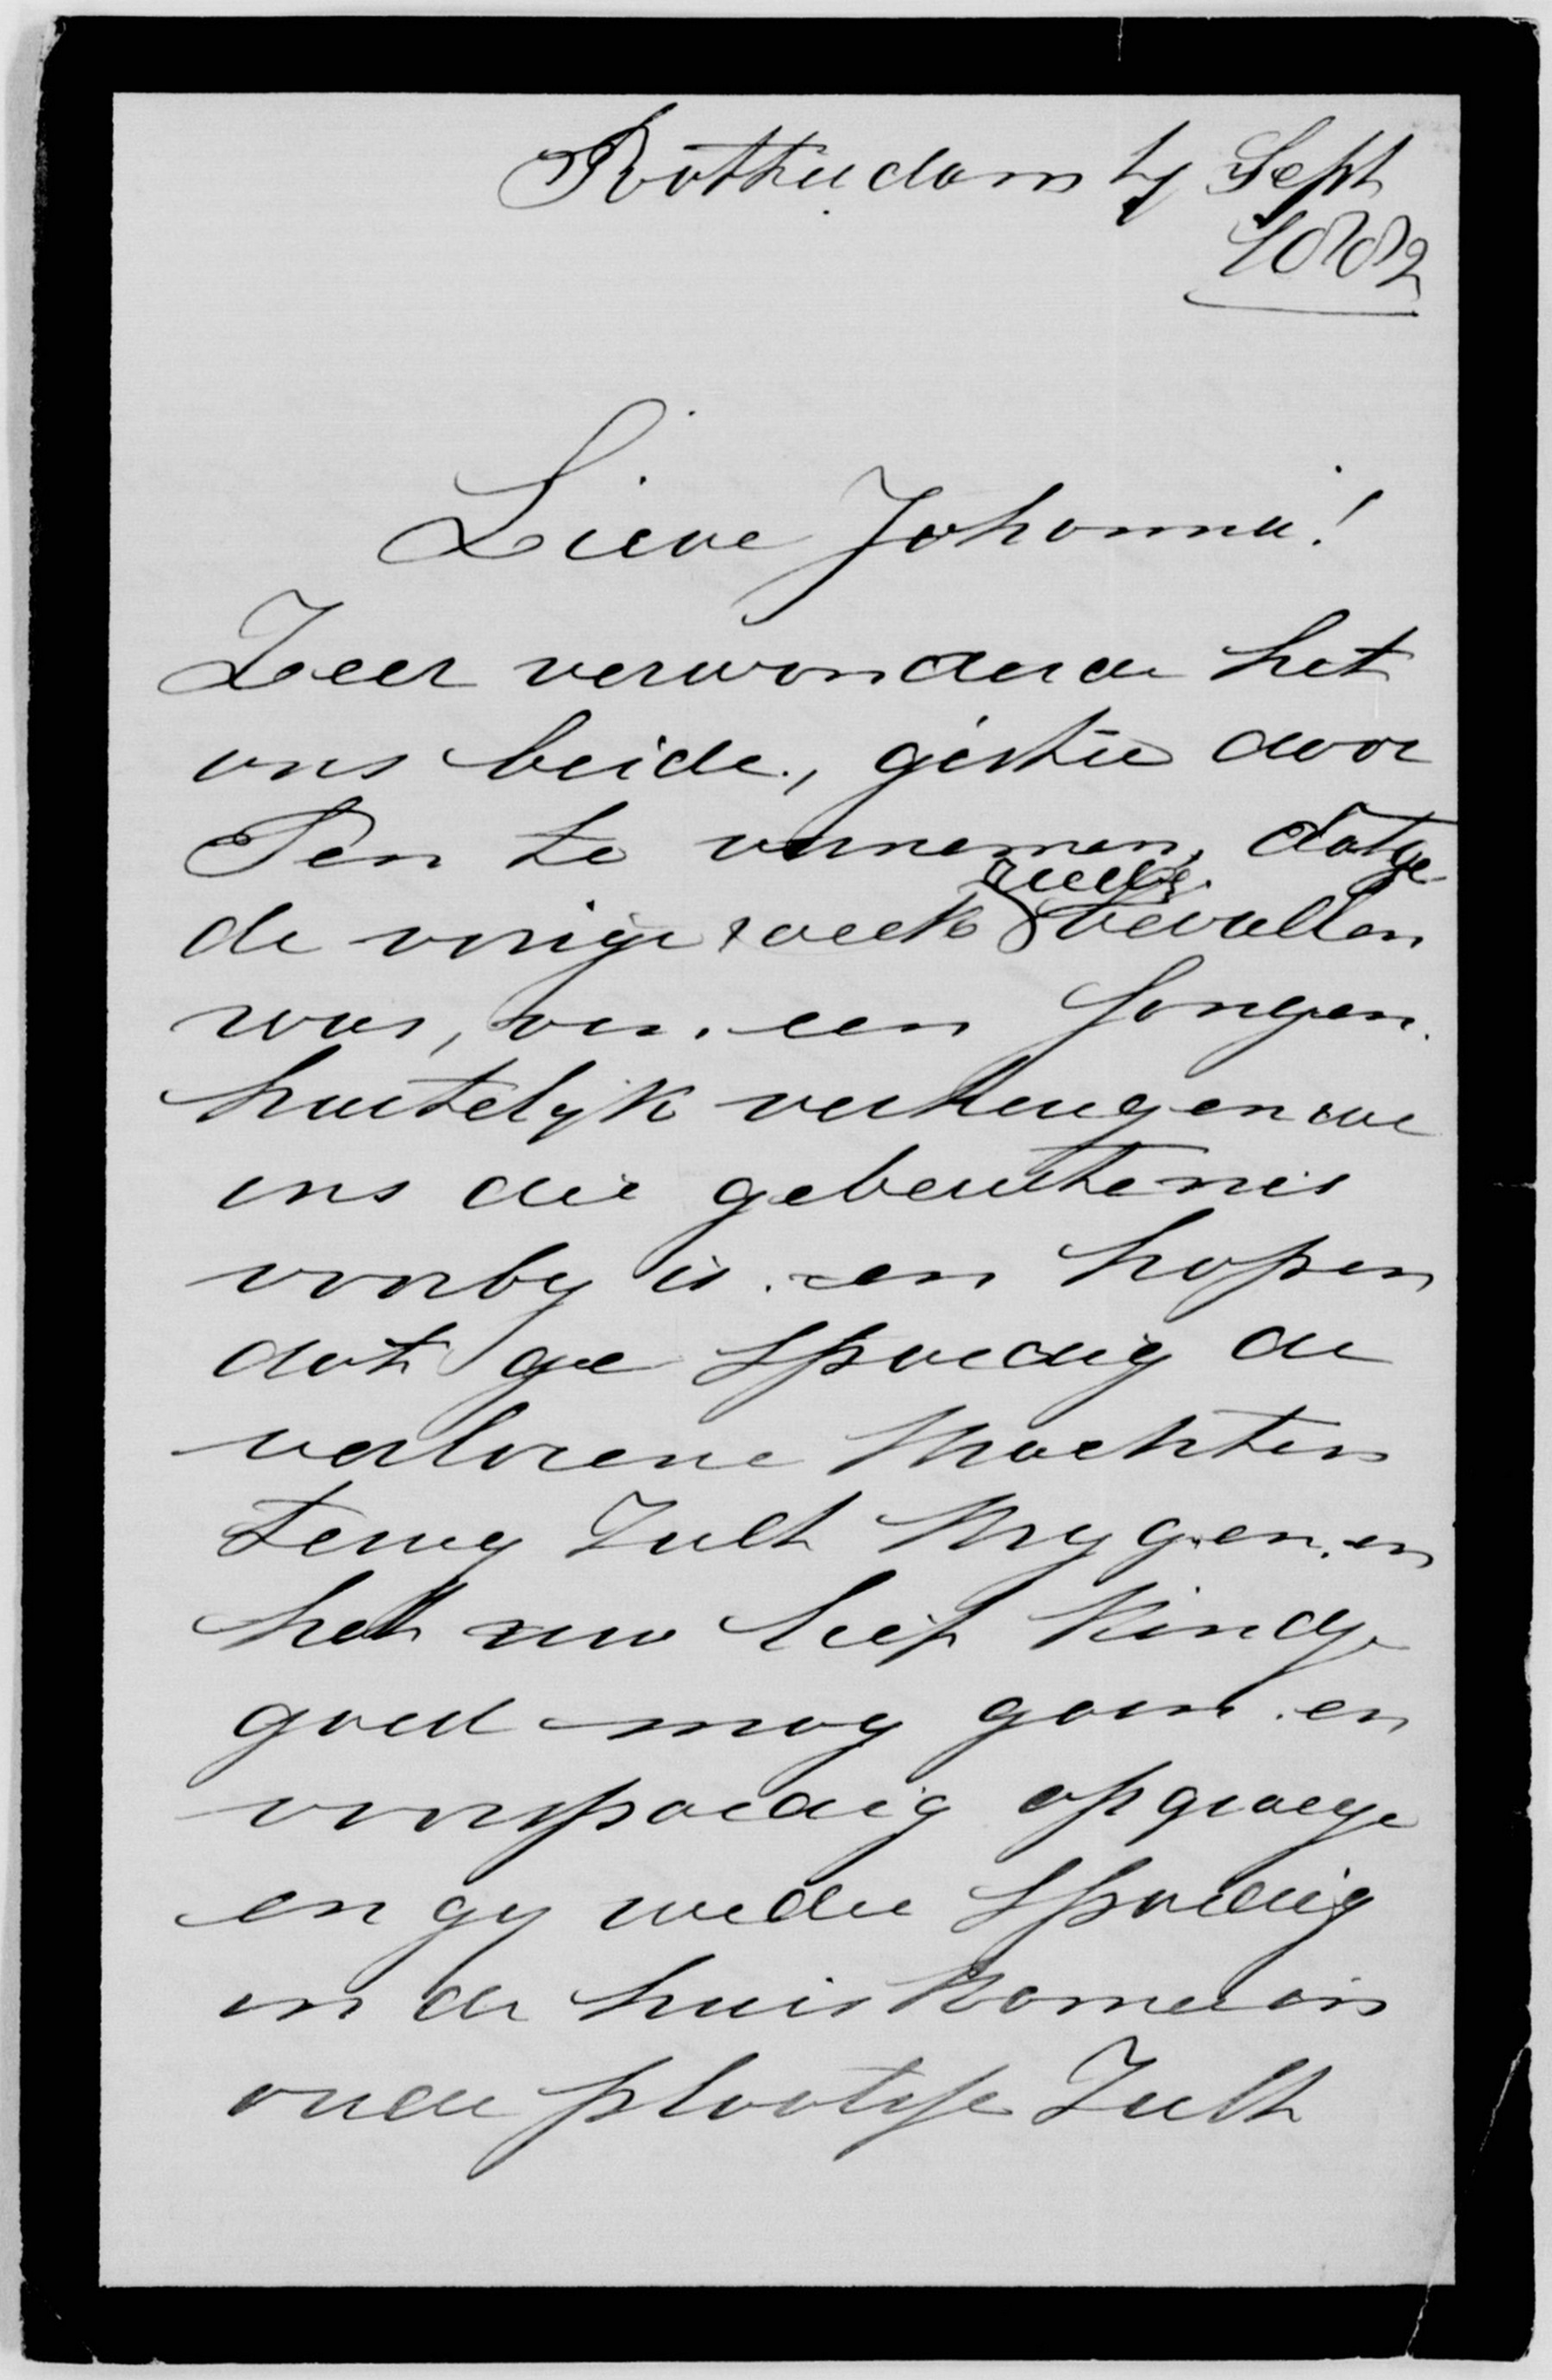 Rotterdam Sept
1882
Lieve Johanna!
Zeer verwonderde het
ons beide, gister door
Pen te vernemen, dat ge
de vorige week reeds bevallen
was, van een Jongen.
hartelyk verheugen we
ons die gebeurtenis
voorby is. en hopen
dat ge spoedig de
verlorene krachten
terug zult krygen. en
het uw lief kindje
goed mag gaan. en
voorspoedig opgroeye
en gy weder spoedig
in de huiskamer ons
oude plaatsje zult